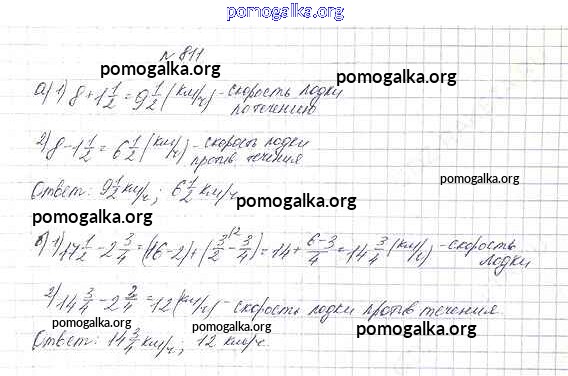 pomogalka.org
№ 811
pomogalka.org
а) 1) 8 + 1 1/2 = 9 1/2 (км/ч) - скорость лодки
по течению
pomogalka.org
2) 8 - 1 1/2 = 6 1/2 (км/ч) - скорость лодки
против течения
pomogalka.org
pomogalka.org
Ответ: 9 1/2 км/ч; 6 1/2 км/ч.
pomogalka.org
pomogalka.org
б) 1) 17 1/2 - 2 3/4 = (16-2) + (3/2 - 3/4) = 14 + 6-3/4 = 14 3/4 (км/ч) - скорость
лодки
2) 14 3/4 - 2 3/4 = 12 (км/ч) - скорость лодки против течения.
pomogalka.org
pomogalka.org
pomogalka.org
Ответ: 14 3/4 км/ч; 12 км/ч.
pomogalka.org